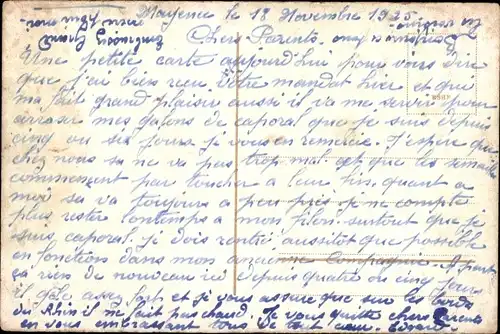 Mayence le 18 Novembre 1925
Chers Parents
Une petite carte aujourd'hui pour vous dire
que j'ai bien reçu Votre mandat hier et qui
ma fait grand plaisir aussi il va me servir pour
arroser mes galons de caporal que je suis depuis
cinq ou six jours. Je vous en remercie. J'espère que
chez nous sa ne va pas trop mal et que les semailles
commencent par toucher a leur fin. quant a
moi sa va toujours a peu près je ne compte
plus rester longtemps a mon filon surtout que je
suis caporal. Je dois rentré aussitot que possible
en fonctions dans mon ancienne Compagnie. A part
ça rien de nouveau ici depuis quatre ou cinq jours
il gèle assez fort et je vous assure que sur les bords
du Rhin il ne fait pas chaud. Je vous quitte chers Parents
en vous embrassant tous de tout cœur